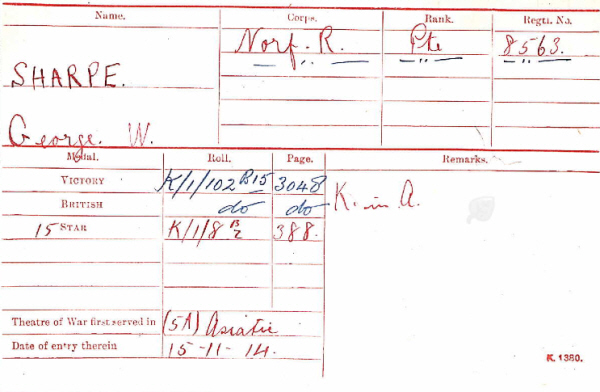 Name. Corps. Rank. Regtl. No.
SHARPE. Norf. R. Pte 8563.
George. W.
Medal. Roll. Page. Remarks.
VICTORY K/1/102 B15 3048 K. in A.
BRITISH do do
15 STAR K/1/8 B2 388.
Theatre of War first served in (5A) Asiatic
Date of entry therein 15-11-14.
K. 1380.